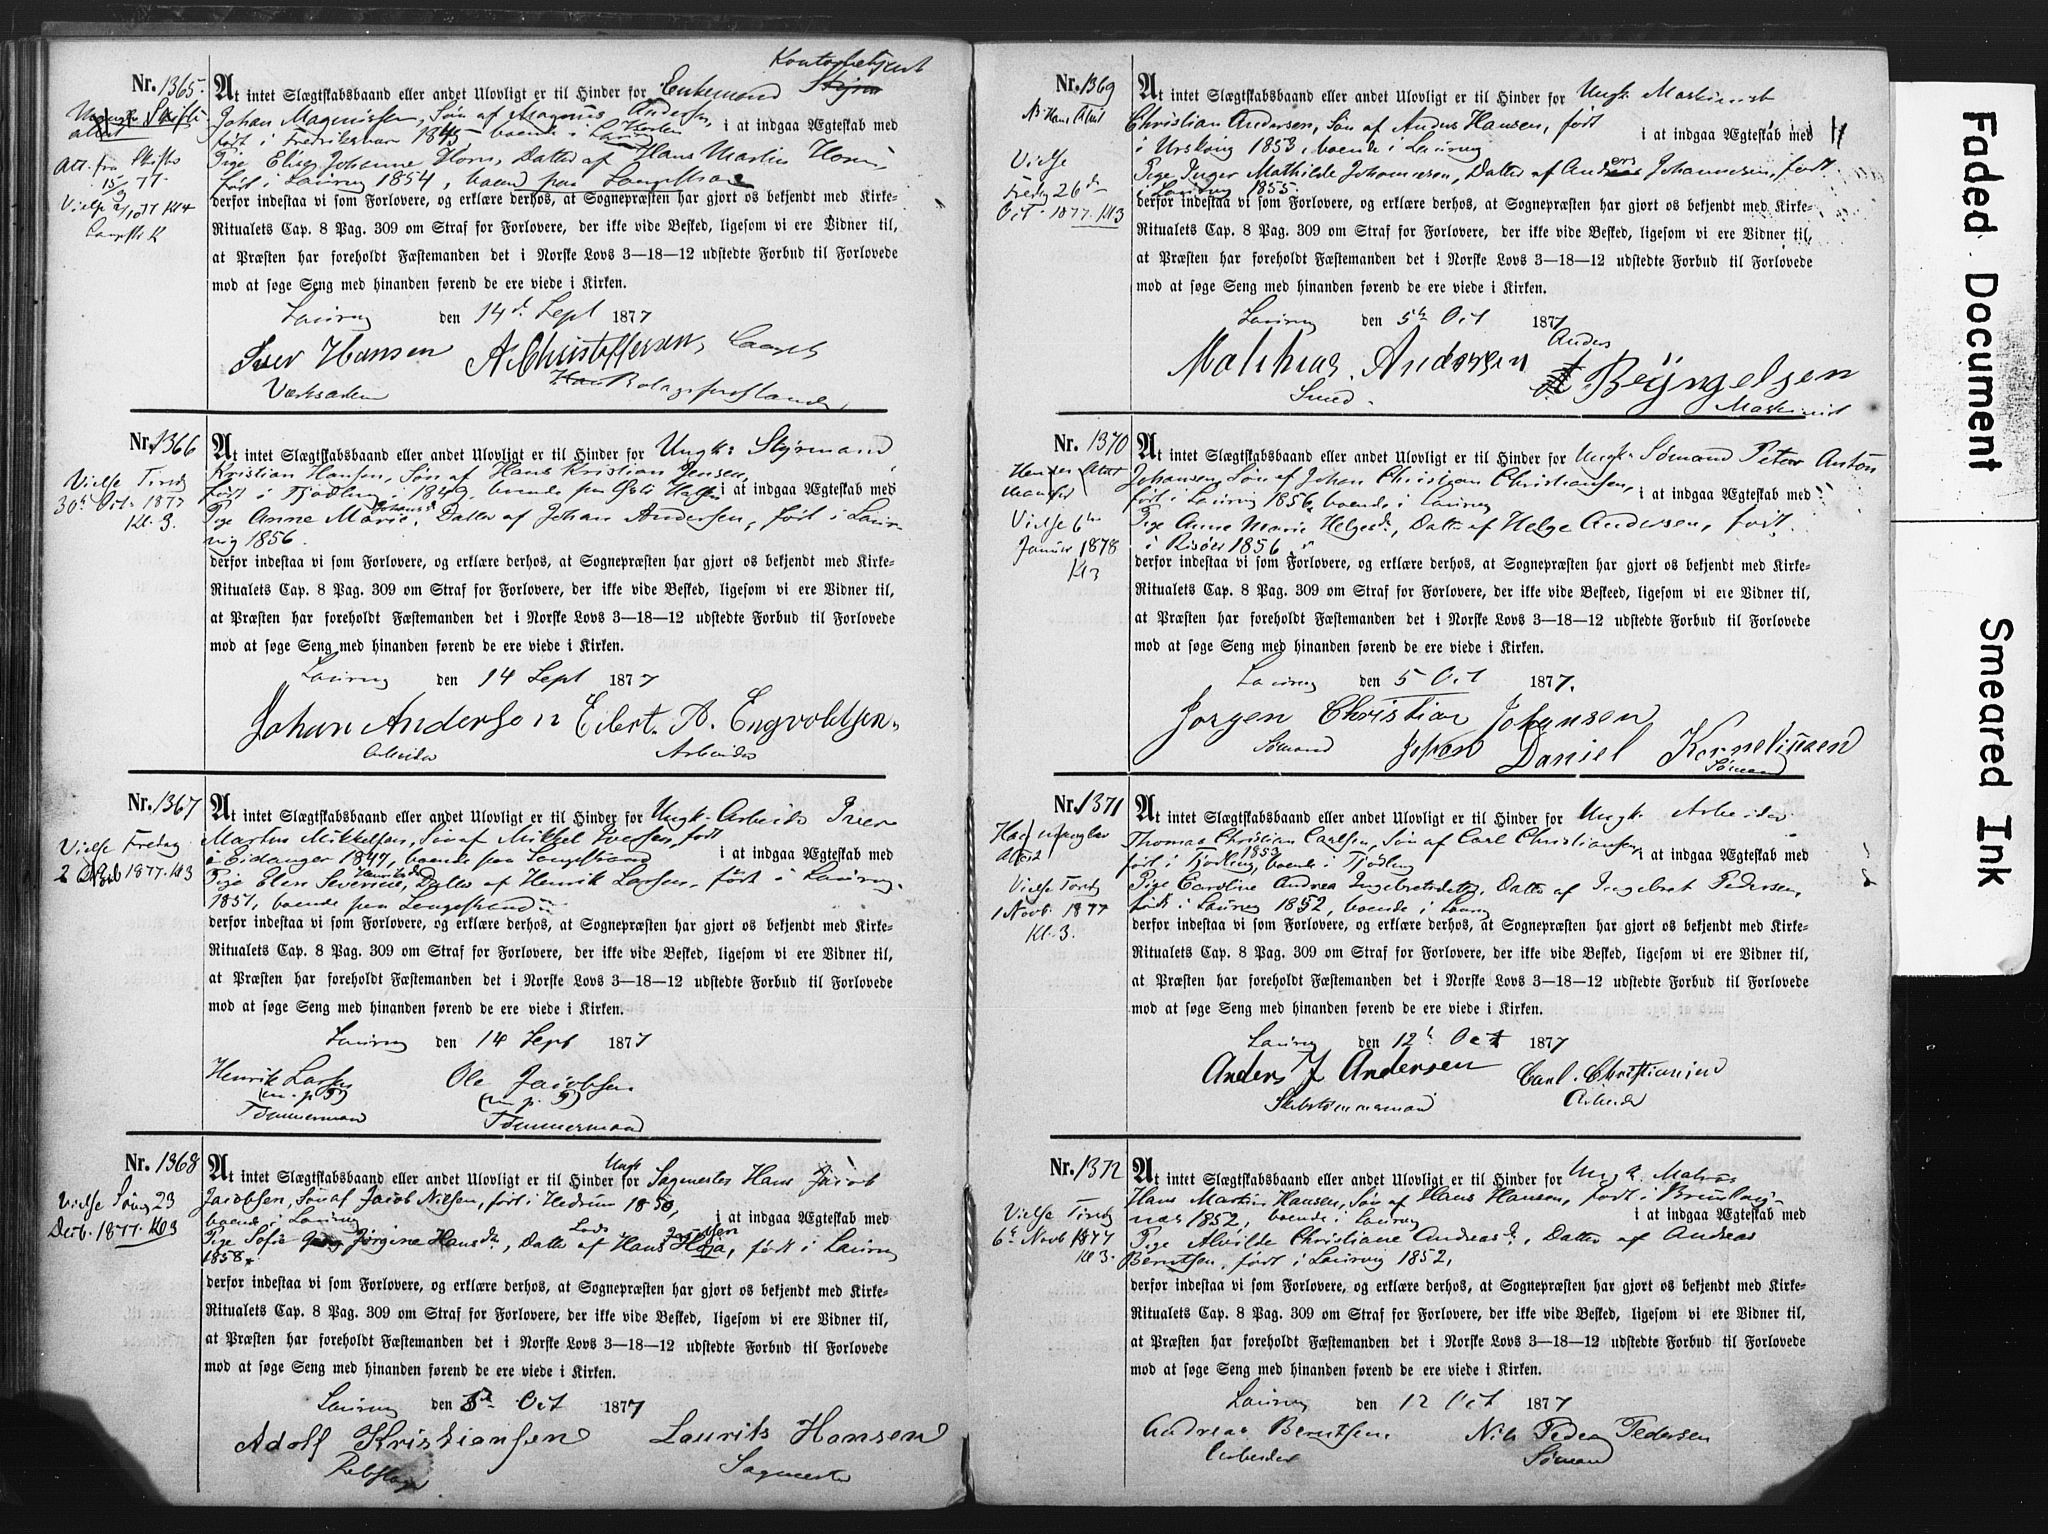 Nr. 1365.
Att. fra Skifte
15/9 77.
Vielse 2/10 77 Kl 4
Kontorbetjent
At intet Slægtskabsbaand eller andet Ulovligt er til Hinder for Enkemand
Johan Magnussen, Søn af Magnus Andersen,
født i Fredrikshavn 1845 boende i Laurvig i at indgaa Ægteskab med
Pige Elise Johanne Horn, Datter af Hans Martin Horn,
født i Laurvig 1854, boende paa Langestrand
derfor indestaa vi som Forlovere, og erklære derhos, at Sognepræsten har gjort os bekjendt med Kirke-
Ritualets Cap. 8 Pag. 309 om Straf for Forlovere, der ikke vide Besked, ligesom vi ere Vidner til,
at Præsten har foreholdt Fæstemanden det i Norske Lovs 3—18—12 udstedte Forbud til Forlovede
mod at søge Seng med hinanden førend de ere viede i Kirken.
Laurvig den 14d. Sept 1877
Iver Hansen A. Christoffersen,
Nr. 1366
Vielse Tirsdag
30te Oct. 1877
Kl. 3.
At intet Slægtskabsbaand eller andet Ulovligt er til Hinder for Ungk. Styrmand
Kristian Hansen, Søn af Hans Kristian Jensen,
født i Tjødling i 1849, boende paa i at indgaa Ægteskab med
Pige Anne Marie Johansd., Datter af Johan Andersen, født i Laur-
vig 1856.
derfor indestaa vi som Forlovere, og erklære derhos, at Sognepræsten har gjort os bekjendt med Kirke-
Ritualets Cap. 8 Pag. 309 om Straf for Forlovere, der ikke vide Besked, ligesom vi ere Vidner til,
at Præsten har foreholdt Fæstemanden det i Norske Lovs 3—18—12 udstedte Forbud til Forlovede
mod at søge Seng med hinanden førend de ere viede i Kirken.
Laurvig den 14 Sept 1877
Johan Anderson Eilert. A. Engvoldsen.
Arbeider Arbeider
Nr. 1367
Vielse Fredag
2 1877. Kl 3
At intet Slægtskabsbaand eller andet Ulovligt er til Hinder for Ungk. Arbeider Iver
Martin Mikkelsen, Søn af Mikkel Iversen, født
i Eidanger 1847, boende paa Langestrand i at indgaa Ægteskab med
Pige Elen Severine Henriksd., Datter af Henrik Larsen, født i Laurvig
1857, boende paa Langestrand
derfor indestaa vi som Forlovere, og erklære derhos, at Sognepræsten har gjort os bekjendt med Kirke-
Ritualets Cap. 8 Pag. 309 om Straf for Forlovere, der ikke vide Besked, ligesom vi ere Vidner til,
at Præsten har foreholdt Fæstemanden det i Norske Lovs 3—18—12 udstedte Forbud til Forlovede
mod at søge Seng med hinanden førend de ere viede i Kirken.
Laurvig den 14 Sept 1877
Henrik Larsen Ole Jacobsen
(m. p. P) (m. p. P)
Tømmermand Tømmermand
Nr. 1368
Vielse Søndag 23
Decb. 1877. Kl 3
At intet Slægtskabsbaand eller andet Ulovligt er til Hinder for Ungk Sagmester Hans Jacob
Jacobsen, Søn af Jacob Nilsen, født i Hedrum 1850,
boende i Laurvig i at indgaa Ægteskab med
Pige Sofie Jørgine Hansd., Datter af Hans født i Laurvig
1858.
derfor indestaa vi som Forlovere, og erklære derhos, at Sognepræsten har gjort os bekjendt med Kirke-
Ritualets Cap. 8 Pag. 309 om Straf for Forlovere, der ikke vide Besked, ligesom vi ere Vidner til,
at Præsten har foreholdt Fæstemanden det i Norske Lovs 3—18—12 udstedte Forbud til Forlovede
mod at søge Seng med hinanden førend de ere viede i Kirken.
Laurvig den 5te Oct 1877
Adolf Kristiansen Laurits Hansen
Rebslager Sagmester
Nr. 1369
Vielse
Fredag 26de
Oct. 1877. Kl 3
At intet Slægtskabsbaand eller andet Ulovligt er til Hinder for Ungk. Maskinist
Christian Andersen, Søn af Anders Hansen, født
i Urskoug 1853, boende i Laurvig i at indgaa Ægteskab med
Pige Inger Mathilde Johannesen, Datter af Anders Johannesen, født
i Laurvig 1855.
derfor indestaa vi som Forlovere, og erklære derhos, at Sognepræsten har gjort os bekjendt med Kirke-
Ritualets Cap. 8 Pag. 309 om Straf for Forlovere, der ikke vide Besked, ligesom vi ere Vidner til,
at Præsten har foreholdt Fæstemanden det i Norske Lovs 3—18—12 udstedte Forbud til Forlovede
mod at søge Seng med hinanden førend de ere viede i Kirken.
Laurvig den 5te Oct 1877
Mathias Andersen Anders Bÿngelsen
Smed. Maskinist
Nr. 1370
Vielse 6te
Januar 1878
Kl 3
At intet Slægtskabsbaand eller andet Ulovligt er til Hinder for Ungk. Sømand Peter Anton
Johansen, Søn af Johan Christian Christiansen,
født i Laurvig 1856, boende i Laurvig i at indgaa Ægteskab med
Pige Anne Marie Helgesd., Datter af Helge Andersen, født
i Risöer 1856.
derfor indestaa vi som Forlovere, og erklære derhos, at Sognepræsten har gjort os bekjendt med Kirke-
Ritualets Cap. 8 Pag. 309 om Straf for Forlovere, der ikke vide Beskeed, ligesom vi ere Vidner til,
at Præsten har foreholdt Fæstemanden det i Norske Lovs 3—18—12 udstedte Forbud til Forlovede
mod at søge Seng med hinanden førend de ere viede i Kirken.
Laurvig den 5 Oct 1877.
Jorgen Christian Johansen
Sømand Johan Daniel Korneliusen
Sømand
Nr. 1371
Vielse Torsdag
1 Novb. 1877
Kl. 3.
At intet Slægtskabsbaand eller andet Ulovligt er til Hinder for Ungk. Arbeider
Thomas Christian Carlsen, Søn af Carl Christiansen,
født i Tjødling 1853, boende i Tjødling i at indgaa Ægteskab med
Pige Caroline Andrea Ingebretsdatter, Datter af Ingebret Pedersen,
født i Laurvig 1852, boende i Laurvig
derfor indestaa vi som Forlovere, og erklære derhos, at Sognepræsten har gjort os bekjendt med Kirke-
Ritualets Cap. 8 Pag. 309 om Straf for Forlovere, der ikke vide Besked, ligesom vi ere Vidner til,
at Præsten har foreholdt Fæstemanden det i Norske Lovs 3—18—12 udstedte Forbud til Forlovede
mod at søge Seng med hinanden førend de ere viede i Kirken.
Laurvig den 12te Oct 1877
Anders J Andersen Carl. Christiansen
Skibstømmermand Arbeider
Nr. 1372
Vielse Tirsdag
6te Novb 1877
Kl 3.
At intet Slægtskabsbaand eller andet Ulovligt er til Hinder for Ungk. Matros
Hans Martin Hansen, Søn af Hans Hansen, født i Brunlag-
nes 1852, boende i Laurvig i at indgaa Ægteskab med
Pige Alvilde Christiane Andreasd., Datter af Andreas
Berntsen, født i Laurvig 1852,
derfor indestaa vi som Forlovere, og erklære derhos, at Sognepræsten har gjort os bekjendt med Kirke-
Ritualets Cap. 8 Pag. 309 om Straf for Forlovere, der ikke vide Besked, ligesom vi ere Vidner til,
at Præsten har foreholdt Fæstemanden det i Norske Lovs 3—18—12 udstedte Forbud til Forlovede
mod at søge Seng med hinanden førend de ere viede i Kirken.
Laurvig den 12 Oct 1877
Andreas Berntsen. Nils Peder Pedersen
Arbeider Sømand
Faded Document
Smeared Ink